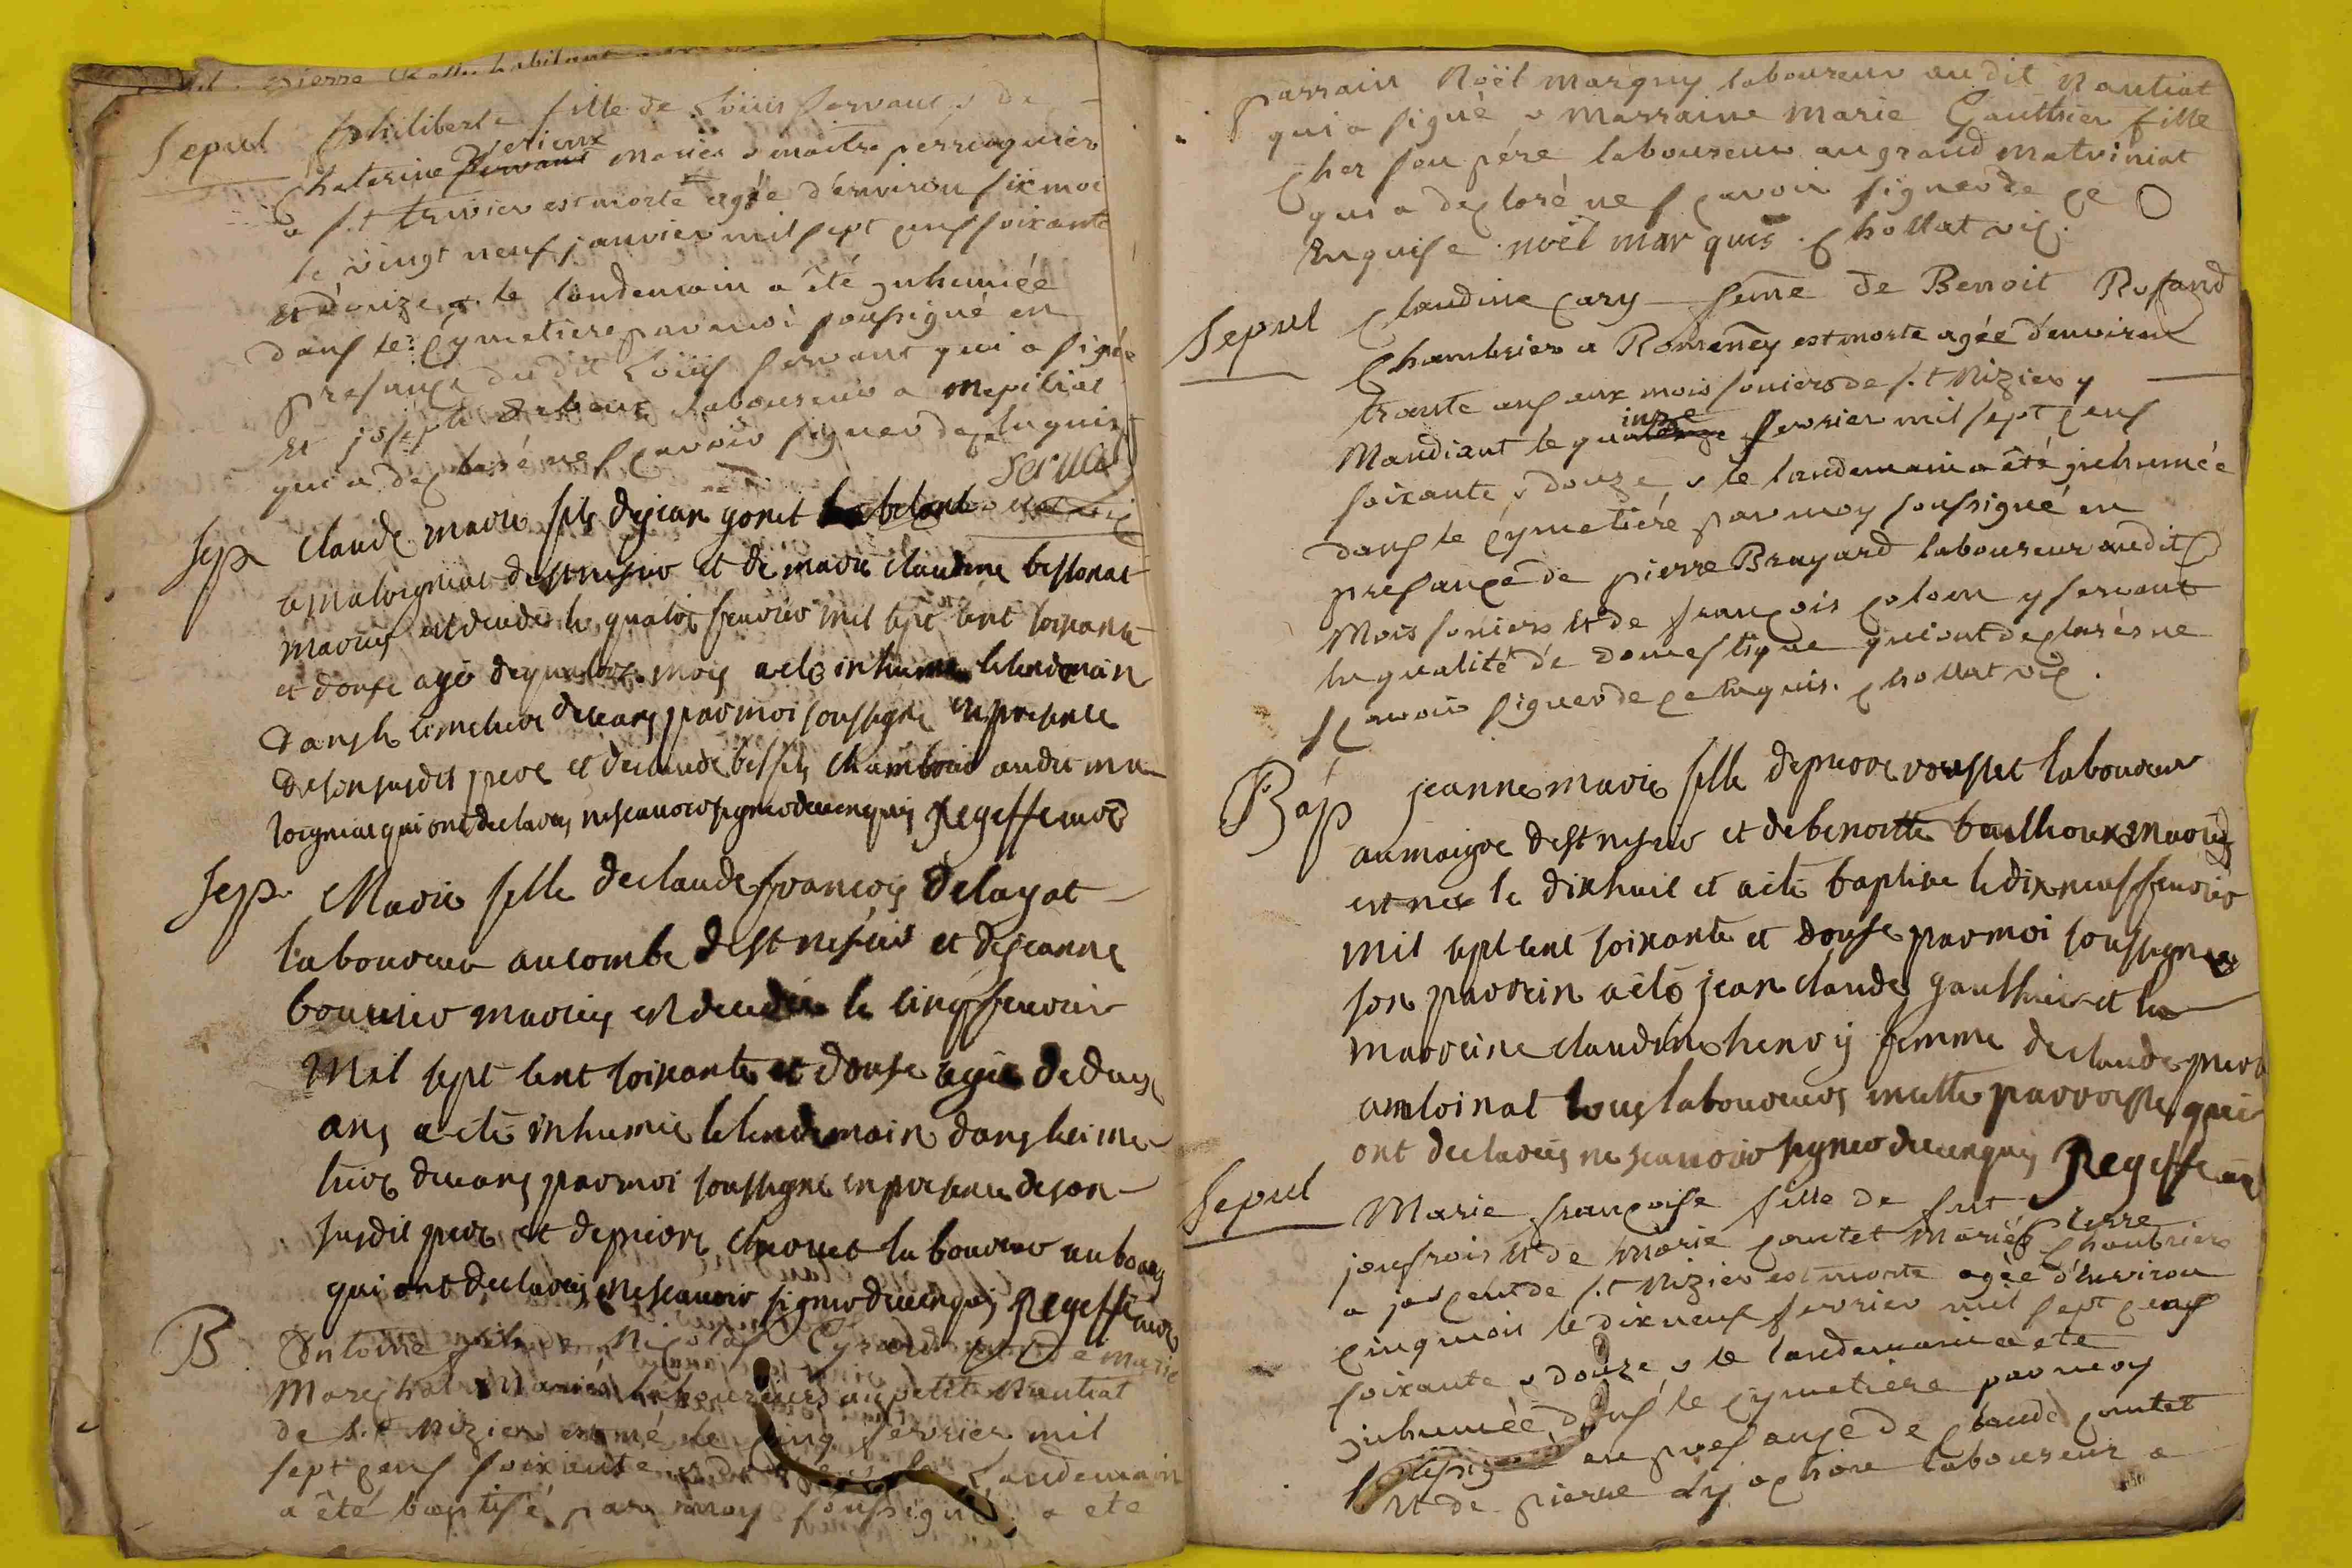 Sepul Philiberte fille de Loüis servant & de
Chaterine Perieux mariés & maitre perruquier
a S.t trivier est morte agée d'environ six moi
le vingt neuf janvier mil sept cens soixante
et douze & le landemain a été inhumée
dans le cymetiere par moi soussigné en
presance du dit Loüis servant qui a signé
et joseph laboureur a Mepiliat
qui a declaré ne scavoir signer de ce enquis
servant
Sep Claude marie fils de jean gonet
a maloigniat de st nisier et de marie claudine bessonat
mariés est decedé le quatre fevrier mil sept cent soixante
et douse agé de quatorze mois a été inhumé le lendemain
dans le cimetiere de ceans par moi soussigné en presence
de son susdit pere et de claude chambrier audit ma
loigniat qui ont declarés ne scavoir signer de ce enquis Regeffe
Sep. Marie fille de claude françois Delayat
laboureur au combe de st nisier et de jeanne
bouvier mariés est decedée le cinq fevrier
mil sept cent soixante et douse agée de deux
ans a été inhumée le lendemain dans le cime
tiere de ceans par moi soussigné en presence de son
susdit pere et de pierre chrouet laboureur au bourg
qui ont declarés ne scavoir signer de ce enquis Regeffe
B Antoine fils de Nicolas et de Marie
Marechal Mariés laboureurs au petit Nantiat
de S.t Nizier est né le cinq fevrier mil
sept cens soixante & douze & le Landemain
a été baptisé par moy soussigné a ete
parrain Noël Marguy laboureur au dit Nantiat
qui a signé & Marraine Marie Gauthier fille
Chez son pére laboureur au grand Matviniat
qui a declaré ne scavoir signer de ce
Enquise . noël mar quis . Chollat vic.
Sepul Claudine Cary feme de Benoit Rosand
Chambrier a Romeney est morte agée d'environ
trante ans aux mois soniers de S.t Nizier y
Mandiant le quinze fevrier mil sept cens
soixante & douze & le landemain a été inhumée
dans le cymetiére par moy soussigné en
presance de pierre Brayard laboureur audit
Mois soniers et de françois colom y servant
en qualité de domestique qui ont declarés ne
scavoir signer de ce Enquis. Chollat vic.
Bap jeanne marie fille de pierre rousset laboureur
au maigre de st nisier et de benoitte mariés
est née le dixhuit et a été baptisée le dix neuf fevrier
mil sept cent soixante et douse par moi soussigné
son parrein a été jean claude gauthier et la
marreine claudine henry femme de claude pierre
amloinat tous laboureurs en cette parroisse qui
ont declarés ne scavoir signer de ce enquis Regeffe
Sepul Marie françoise fille de fut pierre
joufrois et de Marie contet Mariés Chambrier
a de S.t Nizier est morte agée d'environ
cinq mois le dix neuf fevrier mil sept cens
soixante & douze & le landemain a ete
inhumée dans le cymetiere par moy
soussigné en presance de claude contet
et de pierre laboureur a